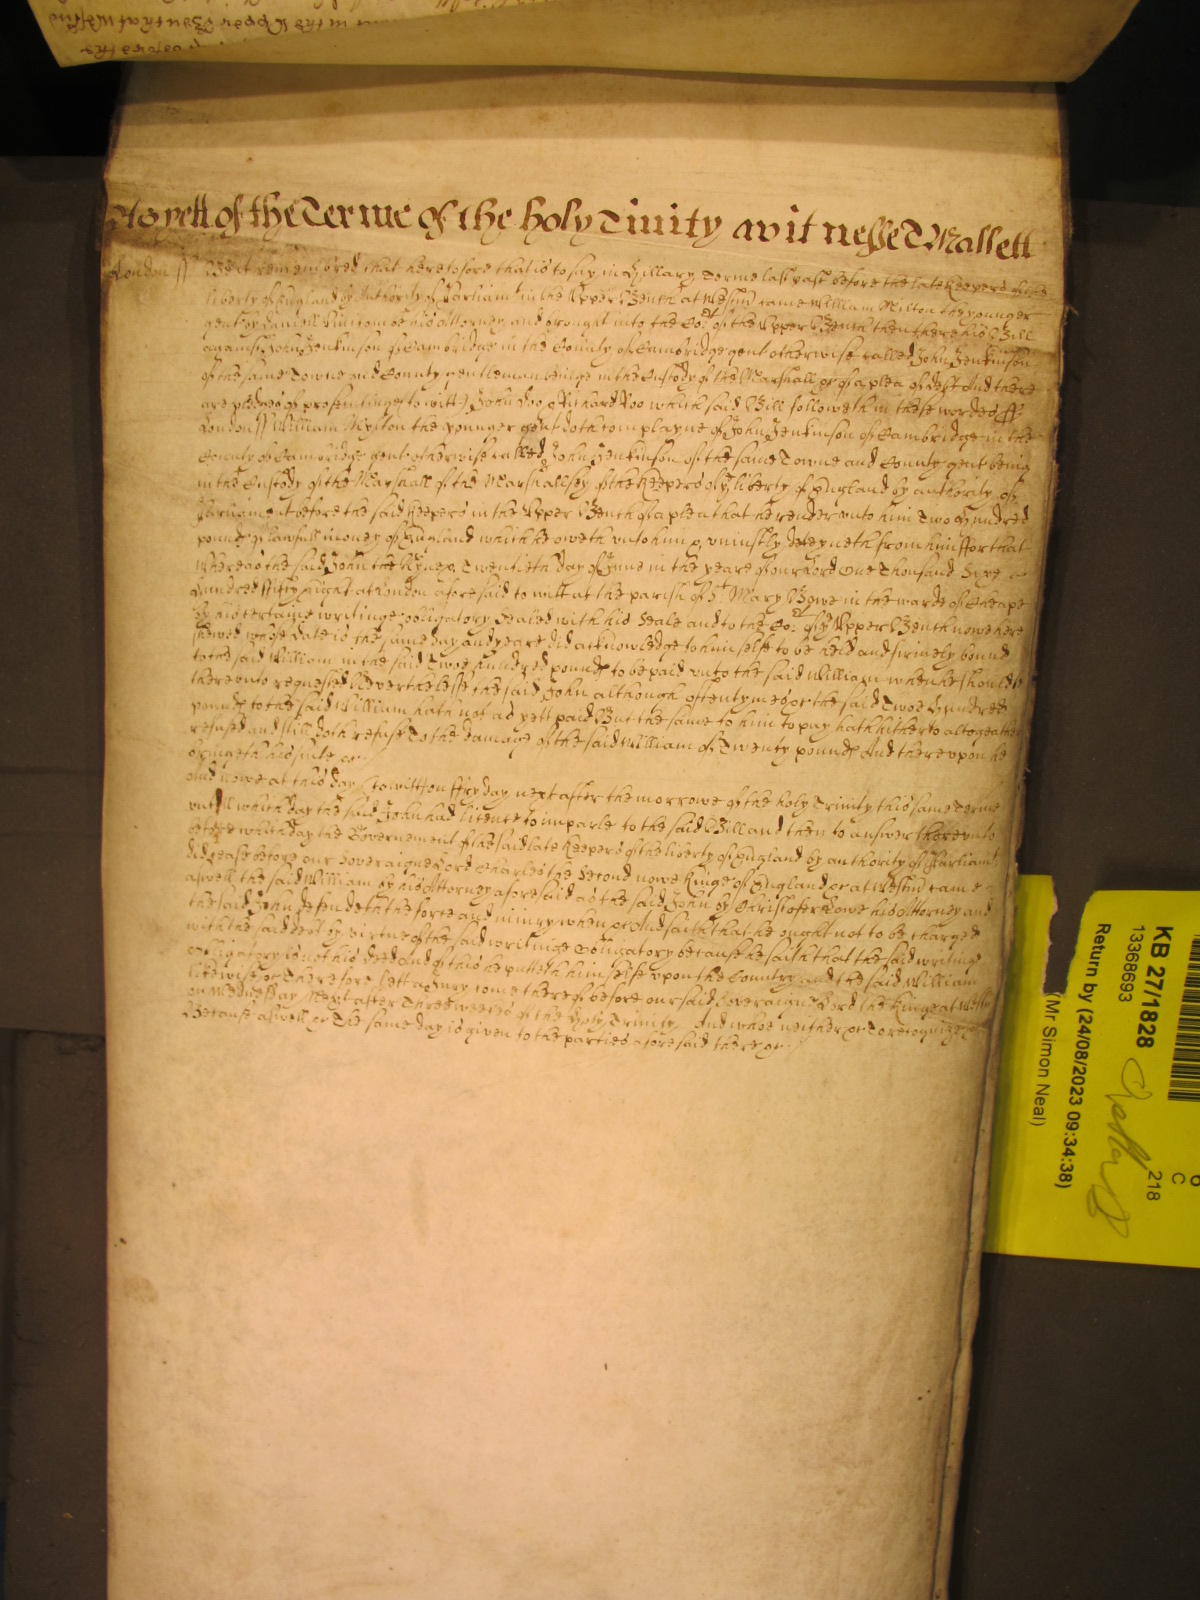 As yett of the Terme of the holy Trinity witnesse T Mallett
London ss Bee it remembred that heretofore that is to say in Hillary Terme last past before the late Keepers of the
liberty of England by Authority of Parliamt in the Upper Bench at Westmr came William Milton the younger
gent by Daniell his Attorney and brought into the Cort of the Upper Bench then there his Bill
against John Jenkinson of Cambridge in the County of Cambridge gent otherwise called John Jenkinson
of the same Towne and County gentleman beinge in the Custody of the Marshall &c of a plea of debt And there
are pledges of prosecutinge (to witt) John Doo & Richard Roo which said Bill followeth in these wordes ss
London ss William Myston the younger gent doth complayne of John Jenkinson of Cambridge in the
County of Cambridge gent otherwise called John Jenkinson of the same Towne and County gent being
in the Custody of the Marshall of the Marshallsey of the Keepers of ye liberty of England by authority of
Parliament before the said Keepers in the Upper Bench of a plea that he render unto him Two Hundred
pounds of lawfull money of England which he oweth unto him & uniustly deteyneth from him ffor that
whereas the said John the Twentieth day of June in the yeare of our Lord One Thousand Sixe
hundred ffifty eight at London aforesaid to witt at the parish of St Mary Bowe in the warde of Cheape
by his certaine writinge obligatory sealed with his Seale and to the Cort of ye Upper Bench nowe here
shewed whose date is the same day and yeare did acknowledge himselfe to be held and firmely bound
to the said William in the said Twoe hundred pounds to be paid unto the said William when he should be
thereunto requested Neverthelesse the said John although oftentymes &c the said Twoe hundred
pounds to the said William hath not as yett paid But the same to him to pay hath hitherto altogeather
refused and still doth refuse To the damage of the said William of Twenty pounds And thereupon he
bringeth his suite &c
And nowe at this day (to witt) on ffryday next after the morrowe of the holy Trinity this same Terme
untill which day the said John had licence to imparle to the said Bill and then to answer thereunto
before which day the Governement of the said late Keepers of the liberty of England by authority of Parliamt
did cease before our Soveraigne Lord Charles the Second nowe Kinge of England &c at Westmr came
aswell the said William by his Attorney aforesaid as the said John by Christofer Lowe his Attorney and
the said John defendeth the force and iniury when &c And saith that he ought not to be charged
with the said debt by virtue of the said writinge obligatory because he saith that the said writinge
obligatory is not his deed And of this he putteth himselfe upon the Country and the said William
likewise &c Therefore lett a Jury come thereof before our said Soveraigne Lord the Kinge at Westmr
on Wednesday next after Three weekes of the holy Trinity And whoe neither &c To recognize &c
Because aswell &c The same day is given to the parties aforesaid there &c
KB 27/1828
13368693
Return by (24/08/2023 09:34:38)
(Mr Simon Neal)
218
C
6